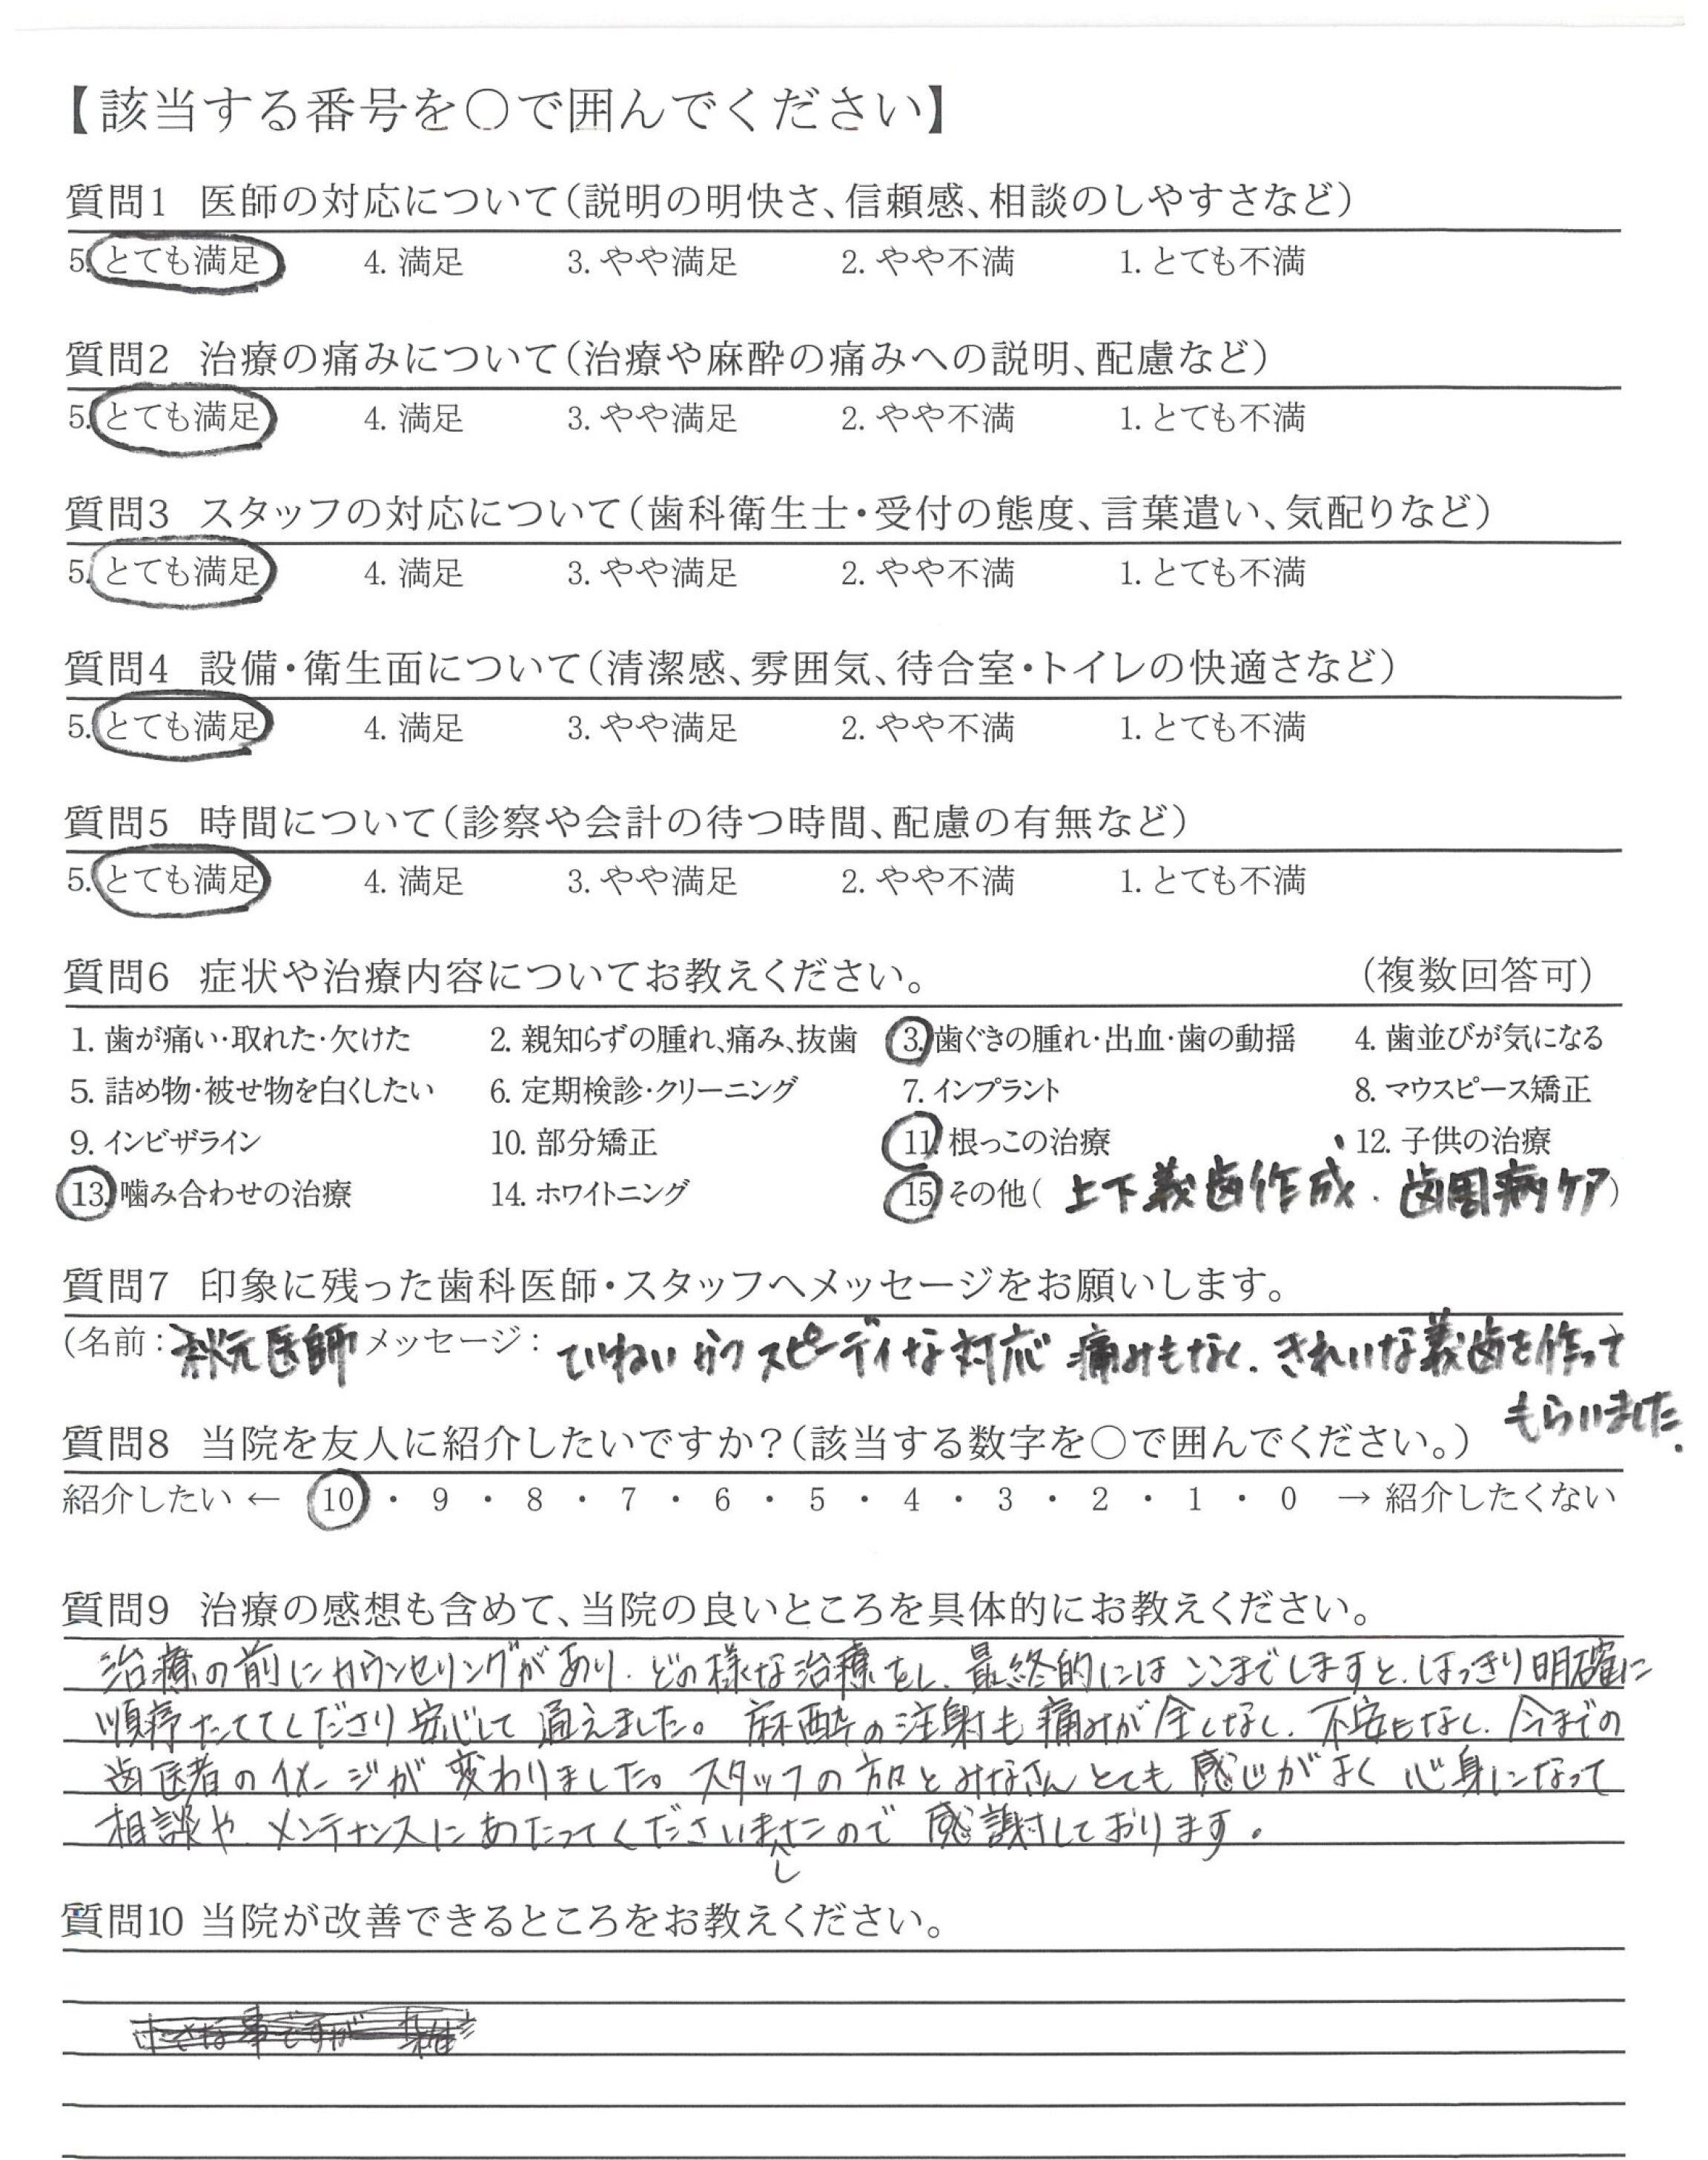 【該当する番号を〇で囲んでください】
質問1 医師の対応について(説明の明快さ、信頼感、相談のしやすさなど)
5. とても満足 4. 満足 3. やや満足 2. やや不満 1. とても不満
質問2 治療の痛みについて(治療や麻酔の痛みへの説明、配慮など)
5. とても満足 4. 満足 3. やや満足 2. やや不満 1. とても不満
質問3 スタッフの対応について(歯科衛生士・受付の態度、言葉遣い、気配りなど)
5. とても満足 4. 満足 3. やや満足 2. やや不満 1. とても不満
質問4 設備・衛生面について(清潔感、雰囲気、待合室・トイレの快適さなど)
5. とても満足 4. 満足 3. やや満足 2. やや不満 1. とても不満
質問5 時間について(診察や会計の待つ時間、配慮の有無など)
5. とても満足 4. 満足 3. やや満足 2. やや不満 1. とても不満
質問6 症状や治療内容についてお教えください。 (複数回答可)
1. 歯が痛い・取れた・欠けた 2. 親知らずの腫れ、痛み、抜歯 3. 歯ぐきの腫れ・出血・歯の動揺 4. 歯並びが気になる
5. 詰め物・被せ物を白くしたい 6. 定期検診・クリーニング 7. インプラント 8. マウスピース矯正
9. インビザライン 10. 部分矯正 11. 根っこの治療 12. 子供の治療
13. 噛み合わせの治療 14. ホワイトニング 15. その他( 上下義歯作成、歯周病ケア)
質問7 印象に残った歯科医師・スタッフへメッセージをお願いします。
(名前:秋元医師 メッセージ: ていねいかつスピーディな対応 痛みもなく、きれいな義歯を作って
もらいました.
質問8 当院を友人に紹介したいですか?(該当する数字を〇で囲んでください。)
紹介したい ← 10 ・ 9 ・ 8 ・ 7 ・ 6 ・ 5 ・ 4 ・ 3 ・ 2 ・ 1 ・ 0 → 紹介したくない
質問9 治療の感想も含めて、当院の良いところを具体的にお教えください。
治療の前にカウンセリングがあり、どの様な治療をし、最終的にはここまでしますと、はっきり明確に
順序たててくださり安心して通えました。麻酔の注射も痛みが全くなく、不安もなく、今までの
歯医者のイメージが変わりました。スタッフの方々とみなさんとても感じがよく心身になって
相談や メンテナンスにあたってくださいましたので感謝しております。
質問10 当院が改善できるところをお教えください。